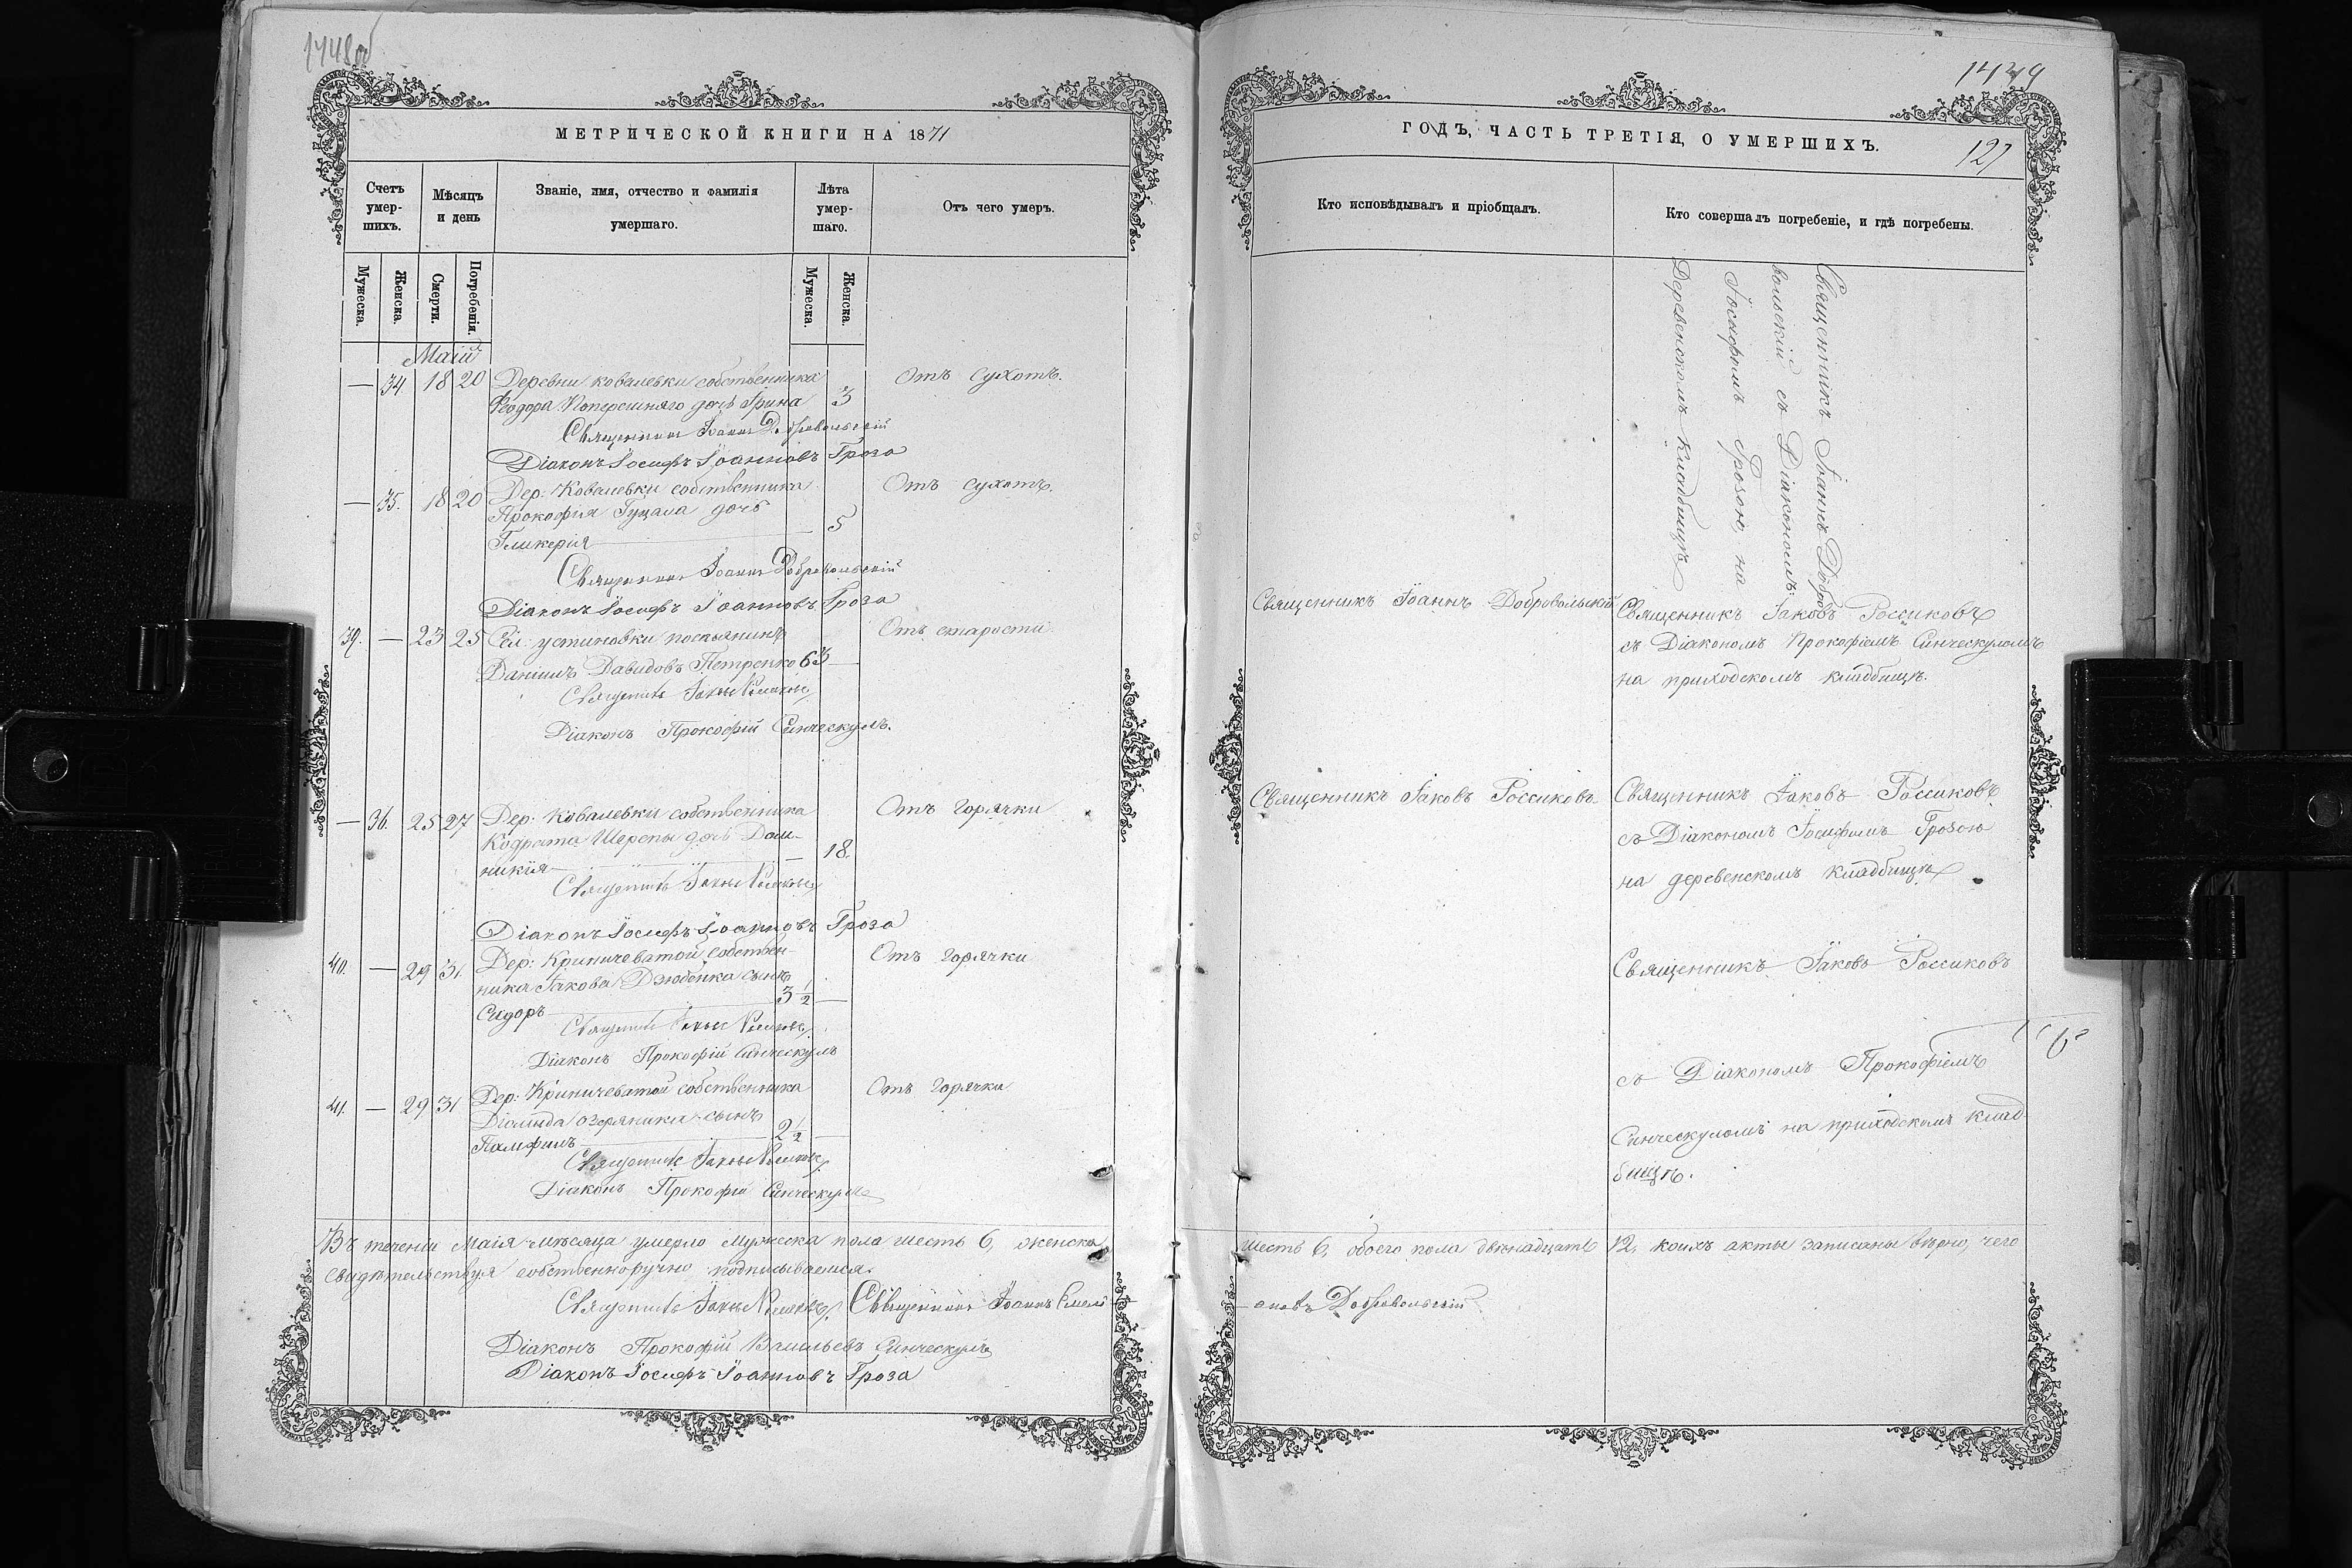 1448об
МЕТРИЧЕСКОЙ КНИГИ НА 1871
Счетъ умер-шихъ.
Мѣсяцъ и день
Званіе, имя, отчество и фамилія умершаго.
Лѣта умер-шаго.
Отъ чего умеръ.
Мужеска.
Женска.
Смерти.
Погребенія.
Мужеска.
Женска.
Маій
— 34 18 20 Деревни Ковалевки собственника Отъ сухотъ.
Ѳеодора Поперешняго дочь Ирина 3
Священникъ Іоаннъ Добровольскій
Діаконъ Іосифъ Іоанновъ Гроза
— 35. 18 20 Дер: Ковалевки собственника Отъ сухотъ.
Прокофія Гуцала дочь
Гликерія 5
Священникъ Іоаннъ Добровольскій
Діаконъ Іосифъ Іоанновъ Гроза
39. — 23 25 Сел: Устиновки поселянинъ Отъ старости
Даніилъ Давидовъ Петренко 63 —
Священникъ Іаковъ Россиковъ
Діаконъ Прокофій Синческулъ.
— 36. 25 27 Дер: Ковалевки собственника Отъ горячки
Кодрата Шерепы дочь Дом-
никія — 18.
Священникъ Іаковъ Россиковъ
Діаконъ Іосифъ Іоанновъ Гроза
40. — 29 31 Дер: Криничеватой собствен- Отъ горячки
ника Іакова Дзюбенка сынъ
Сидоръ 3 1/2 —
Священникъ Іаковъ Россиковъ
Діаконъ Прокофій Синческулъ
41. — 29 31 Дер: Криничеватой собственника Отъ горячки
Діомида Озеряника сынъ
Памфилъ 2 1/2 —
Священникъ Іаковъ Россиковъ
Діаконъ Прокофій Синческулъ
Въ теченіи Маія мѣсяца умерло мужеска пола шесть 6, женска
свидѣтельствуя собственноручно подписываемся.
Священникъ Іаковъ Россиковъ. Священникъ Іоаннъ Емелі-
Діаконъ Прокофій Васильевъ Синческулъ
Діаконъ Іосифъ Іоанновъ Гроза
1449
ГОДЪ, ЧАСТЬ ТРЕТІЯ, О УМЕРШИХЪ.
127
Кто исповѣдывалъ и пріобщалъ.
Кто совершалъ погребеніе, и гдѣ погребены.
Священникъ Іоаннъ Добро
вольскій съ Діакономъ:
Іосифомъ Грозою, на
Деревенскомъ кладбищѣ
Священникъ Іоаннъ Добровольскій
Священникъ Іаковъ Россиковъ
съ Діакономъ Прокофіемъ Синческуломъ
на приходскомъ кладбищѣ.
Священникъ Іаковъ Россиковъ
Священникъ Іаковъ Россиковъ
съ Діакономъ Іосифомъ Грозою
на деревенскомъ кладбищѣ
Священникъ Іаковъ Россиковъ
съ Діакономъ Прокофіемъ
Синческуломъ на приходскомъ клад
бищѣ.
шесть 6, обоего пола двѣнадцать 12, коихъ акты записаны вѣрно, чего
ановъ Добровольскій